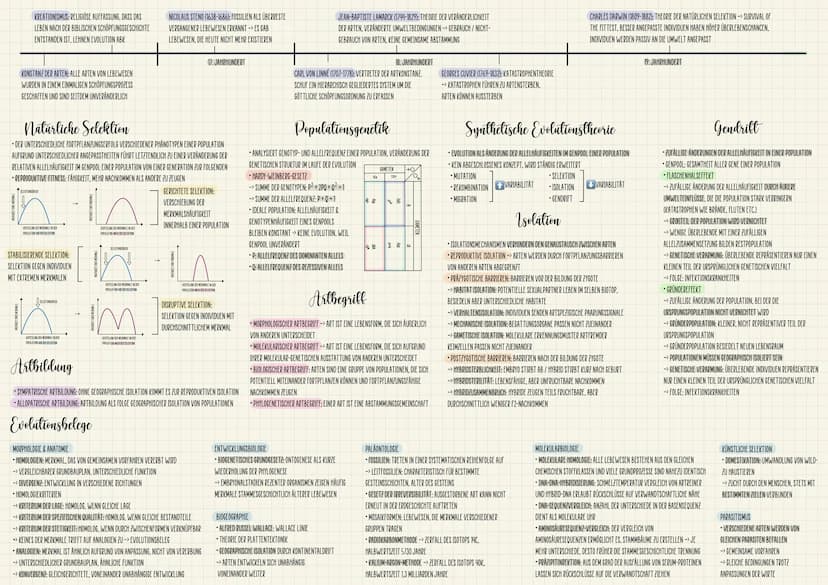 KREATIONISMUS: RELIGIÖSE AUFFASSUNG, DASS DAS
LEBEN NACH DER BIBLISCHEN SCHÖPFUNGSGESCHICHTE
ENTSTANDEN IST, LEHNEN EVOLUTION AB
NICOLAUS STENO (1638-1686): FOSSILIEN ALS ÜBERRESTE
VERGANGENER LEBEWESEN ERKANNT → ES GAB
LEBEWESEN, DIE HEUTE NICHT MEHR EXISTIEREN
JEAN-BAPTISTE LAMARCK (1744-1829): THEORIE DER VERÄNDERLICHKEIT
DER ARTEN, VERÄNDERTE UMWELTBEDINGUNGEN → GEBRAUCH / NICHT-
GEBRAUCH VON ARTEN, KEINE GEMEINSAME ABSTAMMUNG
CHARLES DARWIN (1809-1882): THEORIE DER NATÜRLICHEN SELEKTION → SURVIVAL OF
THE FITTEST, BESSER ANGEPASSTE INDIVIDUEN HABEN HÖHER ÜBERLEBENSCHANCEN,
INDIVIDUEN WERDEN PASSIV AN DIE UMWELT ANGEPASST
17. JAHRHUNDERT
18. JAHRHUNDERT
19. JAHRHUNDERT
KONSTANZ DER ARTEN: ALLE ARTEN VON LEBEWESEN
WURDEN IN EINEM EINMALIGEN SCHÖPFUNGSPROZESS
GESCHAFFEN UND SIND SEITDEM UNVERÄNDERLICH
CARL VON LINNÉ (1707-1778): VERTRETER DER ARTKONSTANZ,
SCHUF EIN HIERARCHISCH GEGLIEDERTES SYSTEM UM DIE
GÖTTLICHE SCHÖPFUNGSORDNUNG ZU ERFASSEN
GEORGES CUVIER (1769-1832): KATASTROPHENTHEORIE
→ KATASTROPHEN FÜHREN ZU ARTENSTERBEN,
ARTEN KÖNNEN AUSSTERBEN
Natürliche Selektion
• DER UNTERSCHIEDLICHE FORTPFLANZUNGSERFOLG VERSCHIEDENER PHÄNOTYPEN EINER POPULATION
AUFGRUND UNTERSCHIEDLICHER ANGEPASSTHEITEN FÜHRT LETZTENDLICH ZU EINER VERÄNDERUNG DER
RELATIVEN ALLELHÄUFIGKEIT IM GENPOOL EINER POPULATION VON EINER GENERATION ZUR FOLGENDEN
• REPRODUKTIVE FITNESS: FÄHIGKEIT, MEHR NACHKOMMEN ALS ANDERE ZU ZEUGEN
GERICHTETE SELEKTION:
VERSCHIEBUNG DER
MERKMALSHÄUFIGKEIT
INNERHALB EINER POPULATION
STABILISIERENDE SELEKTION:
SELEKTION GEGEN INDIVIDUEN
MIT EXTREMEN MERKMALEN
DISRUPTIVE SELEKTION:
SELEKTION GEGEN INDIVIDUEN MIT
DURCHSCHNITTLICHEM MERKMAL
Artbildung
• SYMPATRISCHE ARTBILDUNG: OHNE GEOGRAPHISCHE ISOLATION KOMMT ES ZUR REPRODUKTIVEN ISOLATION
• ALLOPATRISCHE ARTBILDUNG: ARTBILDUNG ALS FOLGE GEOGRAPHISCHER ISOLATION VON POPULATIONEN
Populationsgenetik
• ANALYSIERT GENOTYP- UND ALLELFREQUENZ EINER POPULATION, VERÄNDERUNG DER
GENETISCHEN STRUKTUR IM LAUFE DER EVOLUTION
• HARDY-WEINBERG-GESETZ
→ SUMME DER GENOTYPEN: P²+2PQ+Q²=1
→ SUMME DER ALLELFREQUENZ: P+Q=1
• IDEALE POPULATION: ALLELHÄUFIGKEIT &
GENOTYPENHÄUFIGKEIT EINES GENPOOLS
BLEIBEN KONSTANT → KEINE EVOLUTION, WEIL
GENPOOL UNVERÄNDERT
P: ALLELFREQUENZ DES DOMINANTEN ALLELS
Q: ALLELFREQUENZ DES REZESSIVEN ALLELS
GAMETEN
Artbegriff
• MORPHOLOGISCHER ARTBEGRIFF → ART IST EINE LEBENSFORM, DIE SICH ÄUSSERLICH
VON ANDEREN UNTERSCHEIDET
• MOLEKULARISCHER ARTBEGRIFF → ART IST EINE LEBENSFORM, DIE SICH AUFGRUND
IHRER MOLEKULAR-GENETISCHEN AUSSTATTUNG VON ANDEREN UNTERSCHEIDET
• BIOLOGISCHER ARTBEGRIFF → ARTEN SIND EINE GRUPPE VON POPULATIONEN, DIE SICH
POTENTIELL MITEINANDER FORTPFLANZEN KÖNNEN UND FORTPFLANZUNGSFÄHIGE
NACHKOMMEN ZEUGEN
• PHYLOGENETISCHER ARTBEGRIFF: EINER ART IST EINE ABSTAMMUNGSGEMEINSCHAFT
Synthetische Evolutionstheorie
• EVOLUTION ALS ÄNDERUNG DER ALLELHÄUFIGKEITEN IM GENPOOL EINER POPULATION
• KEIN ABGESCHLOSSENES KONZEPT, WIRD STÄNDIG ERWEITERT
• MUTATION
• REKOMBINATION
• MIGRATION
VARIABILITÄT
• SELEKTION
• ISOLATION
• GENDRIFT
VARIABILITÄT
Isolation
• ISOLATIONSMECHANISMEN VERHINDERN DEN GENAUSTAUSCH ZWISCHEN ARTEN
• REPRODUKTIVE ISOLATION → ARTEN WERDEN DURCH FORTPFLANZUNGSBARRIEREN
VON ANDEREN ARTEN ABGEGRENZT
• PRÄZYGOTISCHE BARRIEREN: BARRIEREN VOR DER BILDUNG DER ZYGOTE
→ HABITAT ISOLATION: POTENTIELLE SEXUALPARTNER LEBEN IM SELBEN BIOTOP,
BESIEDELN ABER UNTERSCHIEDLICHE HABITATE
→ VERHALTENSISOLATION: INDIVIDUEN SENDEN ARTSPEZIFISCHE PAARUNGSSIGNALE
→ MECHANISCHE ISOLATION: BEGATTUNGSORGANE PASSEN NICHT ZUEINANDER
→ GAMETISCHE ISOLATION: MOLEKULARE ERKENNUNGSMUSTER ARTFREMDER
KEIMZELLEN PASSEN NICHT ZUEINANDER
• POSTZYGOTISCHE BARRIEREN: BARRIEREN NACH DER BILDUNG DER ZYGOTE
→ HYBRIDSTERBLICHKEIT: EMBRYO STIRBT AB / HYBRID STIRBT KURZ NACH GEBURT
→ HYBRIDSTERILITÄT: LEBENSFÄHIGE, ABER UNFRUCHTBARE NACHKOMMEN
→ HYBRIDZUSAMMENBRUCH: HYBRIDE ZEIGEN TEILS FRUCHTBARE, ABER
DURCHSCHNITTLICH WENIGER F2-NACHKOMMEN
Gendrift
• ZUFÄLLIGE ÄNDERUNGEN DER ALLELHÄUFIGKEIT IN EINER POPULATION
• GENPOOL: GESAMTHEIT ALLER GENE EINER POPULATION
• FLASCHENHALSEFFEKT
→ ZUFÄLLIGE ÄNDERUNG DER ALLELHÄUFIGKEIT DURCH ÄUSSERE
UMWELTEINFLÜSSE, DIE DIE POPULATION STARK VERRINGERN
(KATASTROPHEN WIE BRÄNDE, FLUTEN ETC.)
→ GROSSTEIL DER POPULATION WIRD VERNICHTET
→ WENIGE ÜBERLEBENDE MIT EINER ZUFÄLLIGEN
ALLELZUSAMMENSETZUNG BILDEN RESTPOPULATION
→ GENETISCHE VERARMUNG: ÜBERLEBENDE REPRÄSENTIEREN NUR EINEN
KLEINEN TEIL DER URSPRÜNGLICHEN GENETISCHEN VIELFALT
→ FOLGE: INFEKTIONSKRANKHEITEN
• GRÜNDEREFFEKT
→ ZUFÄLLIGE ÄNDERUNG DER POPULATION, BEI DER DIE
URSPRUNGSPOPULATION NICHT VERNICHTET WIRD
→ GRÜNDERPOPULATION: KLEINER, NICHT REPRÄSENTATIVER TEIL DER
URSPRUNGSPOPULATION
→ GRÜNDERPOPULATION BESIEDELT NEUEN LEBENSRAUM
→ POPULATIONEN MÜSSEN GEOGRAPHISCH ISOLIERT SEIN
→ GENETISCHE VERARMUNG: ÜBERLEBENDE INDIVIDUEN REPRÄSENTIEREN
NUR EINEN KLEINEN TEIL DER URSPRÜNGLICHEN GENETISCHEN VIELFALT
→ FOLGE: INFEKTIONSKRANKHEITEN
Evolutionsbelege
MORPHOLOGIE & ANATOMIE
• HOMOLOGIEN: MERKMAL, DAS VON GEMEINSAMEN VORFAHREN VERERBT WIRD
→ VERGLEICHBARER GRUNDBAUPLAN, UNTERSCHIEDLICHE FUNKTION
→ DIVERGENZ: ENTWICKLUNG IN VERSCHIEDENE RICHTUNGEN
• HOMOLOGIEKRITERIEN
→ KRITERIUM DER LAGE: HOMOLOG, WENN GLEICHE LAGE
→ KRITERIUM DER SPEZIFISCHEN QUALITÄT: HOMOLOG, WENN GLEICHE BESTANDTEILE
→ KRITERIUM DER STETIGKEIT: HOMOLOG, WENN DURCH ZWISCHENFORMEN VERKNÜPFBAR
→ KEINES DER MERKMALE TRIFFT AUF ANALOGIEN ZU → EVOLUTIONSBELEG
• ANALOGIEN: MERKMAL IST ÄHNLICH AUFGRUND VON ANPASSUNG, NICHT VON VERERBUNG
→ UNTERSCHIEDLICHER GRUNDBAUPLAN, ÄHNLICHE FUNKTION
→ KONVERGENZ: GLEICHGERICHTETE, VONEINANDER UNABHÄNGIGE ENTWICKLUNG
ENTWICKLUNGSBIOLOGIE
• BIOGENETISCHES GRUNDGESETZ: ONTOGENESE ALS KURZE
WIEDERHOLUNG DER PHYLOGENESE
→ EMBRYONALSTADIEN REZENTER ORGANISMEN ZEIGEN HÄUFIG
MERKMALE STAMMESGESCHICHTLICH ÄLTERER LEBEWESEN
BIOGEOGRAPHIE
• ALFRED RUSSEL WALLACE: WALLACE LINIE
• THEORIE DER PLATTENTEKTONIK
• GEOGRAPHISCHE ISOLATION DURCH KONTINENTALDRIFT
→ ARTEN ENTWICKELN SICH UNABHÄNGIG
VONEINANDER WEITER
PALÄONTOLOGIE
• FOSSILIEN: TRETEN IN EINER SYSTEMATISCHEN REIHENFOLGE AUF
→ LEITFOSSILIEN: CHARAKTERISTISCH FÜR BESTIMMTE
GESTEINSSCHICHTEN, ALTER DES GESTEINS
• GESETZ DER IRREVERSIBILITÄT: AUSGESTORBENE ART KANN NICHT
ERNEUT IN DER ERDGESCHICHTE AUFTRETEN
• MOSAIKFORMEN: LEBEWESEN, DIE MERKMALE VERSCHIEDENER
GRUPPEN TRAGEN
• RADIOKARBONMETHODE → ZERFALL DES ISOTOPS 14C,
HALBWERTSZEIT 5730 JAHRE
• KALIUM-ARGON-METHODE → ZERFALL DES ISOTOPS 40K,
HALBWERTSZEIT 1,3 MILLIARDEN JAHRE
MOLEKULARBIOLOGIE
• MOLEKULARE HOMOLOGIE: ALLE LEBEWESEN BESTEHEN AUS DEN GLEICHEN
CHEMISCHEN STOFFKLASSEN UND VIELE GRUNDPROZESSE SIND NAHEZU IDENTISCH
• DNA-DNA-HYBRIDISIERUNG: SCHMELZTEMPERATUR VERGLEICH VON ARTREINER
UND HYBRID-DNA ERLAUBT RÜCKSCHLÜSSE AUF VERWANDTSCHAFTLICHE NÄHE
• DNA-SEQUENZVERGLEICH: ANZAHL DER UNTERSCHIEDE IN DER BASENSEQUENZ
DIENT ALS MOLEKULARE UHR
• AMINOSÄUREN-SEQUENZVERGLEICH: DER VERGLEICH VON
AMINOSÄURESEQUENZEN ERMÖGLICHT ES, STAMMBÄUME ZU ERSTELLEN → JE
MEHR UNTERSCHIEDE, DESTO FRÜHER DIE STAMMESGESCHICHTLICHE TRENNUNG
• PRÄZIPITINREAKTION: AUS DEM GRAD DER AUSFÄLLUNG VON SERUM-PROTEINEN
LASSEN SICH RÜCKSCHLÜSSE AUF DIE VERWANDTSCHAFT ZIEHEN
KÜNSTLICHE SELEKTION
• DOMESTIKATION: UMWANDLUNG VON WILD-
ZU HAUSTIEREN
→ ZUCHT DURCH DEN MENSCHEN, STETS MIT
BESTIMMTEN ZIELEN VERBUNDEN
PARASITISMUS
• VERWANDTE ARTEN WERDEN VON
GLEICHEN PARASITEN BEFALLEN
→ GEMEINSAME VORFAHREN
→ GLEICHE BEDINGUNGEN TROTZ
ANPASSUNGEN DER WIRTE